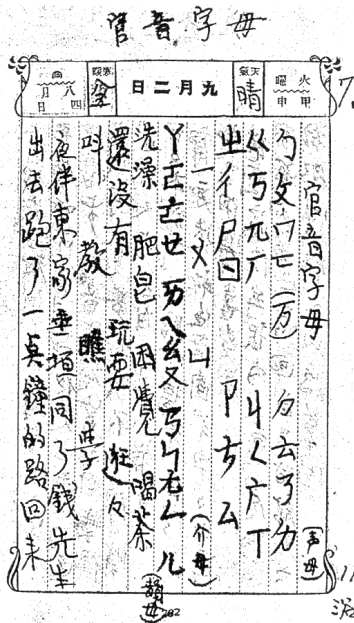 官音字母
火曜
甲申
天氣
晴
九月二日
寒暖
八月
四日
官音字母
ㄅㄆㄇㄈ(万) ㄉㄊㄋㄌ (声母)
ㄍㄎ兀ㄏ ㄐㄑ广ㄒ
ㄓㄔㄕㄖ ㄗㄘㄙ
一 ㄨ ㄩ (介母)
ㄚㄛㄜㄝ ㄞㄟㄠㄡ ㄢㄣㄤㄥ ㄦ (韻母)
洗澡 肥皂 困覺 喝茶
還沒有 玩耍 逛々
叫 教 瞧
夜伴東家垂垣同了錢先生
出去跑了一点鐘的路回来
282